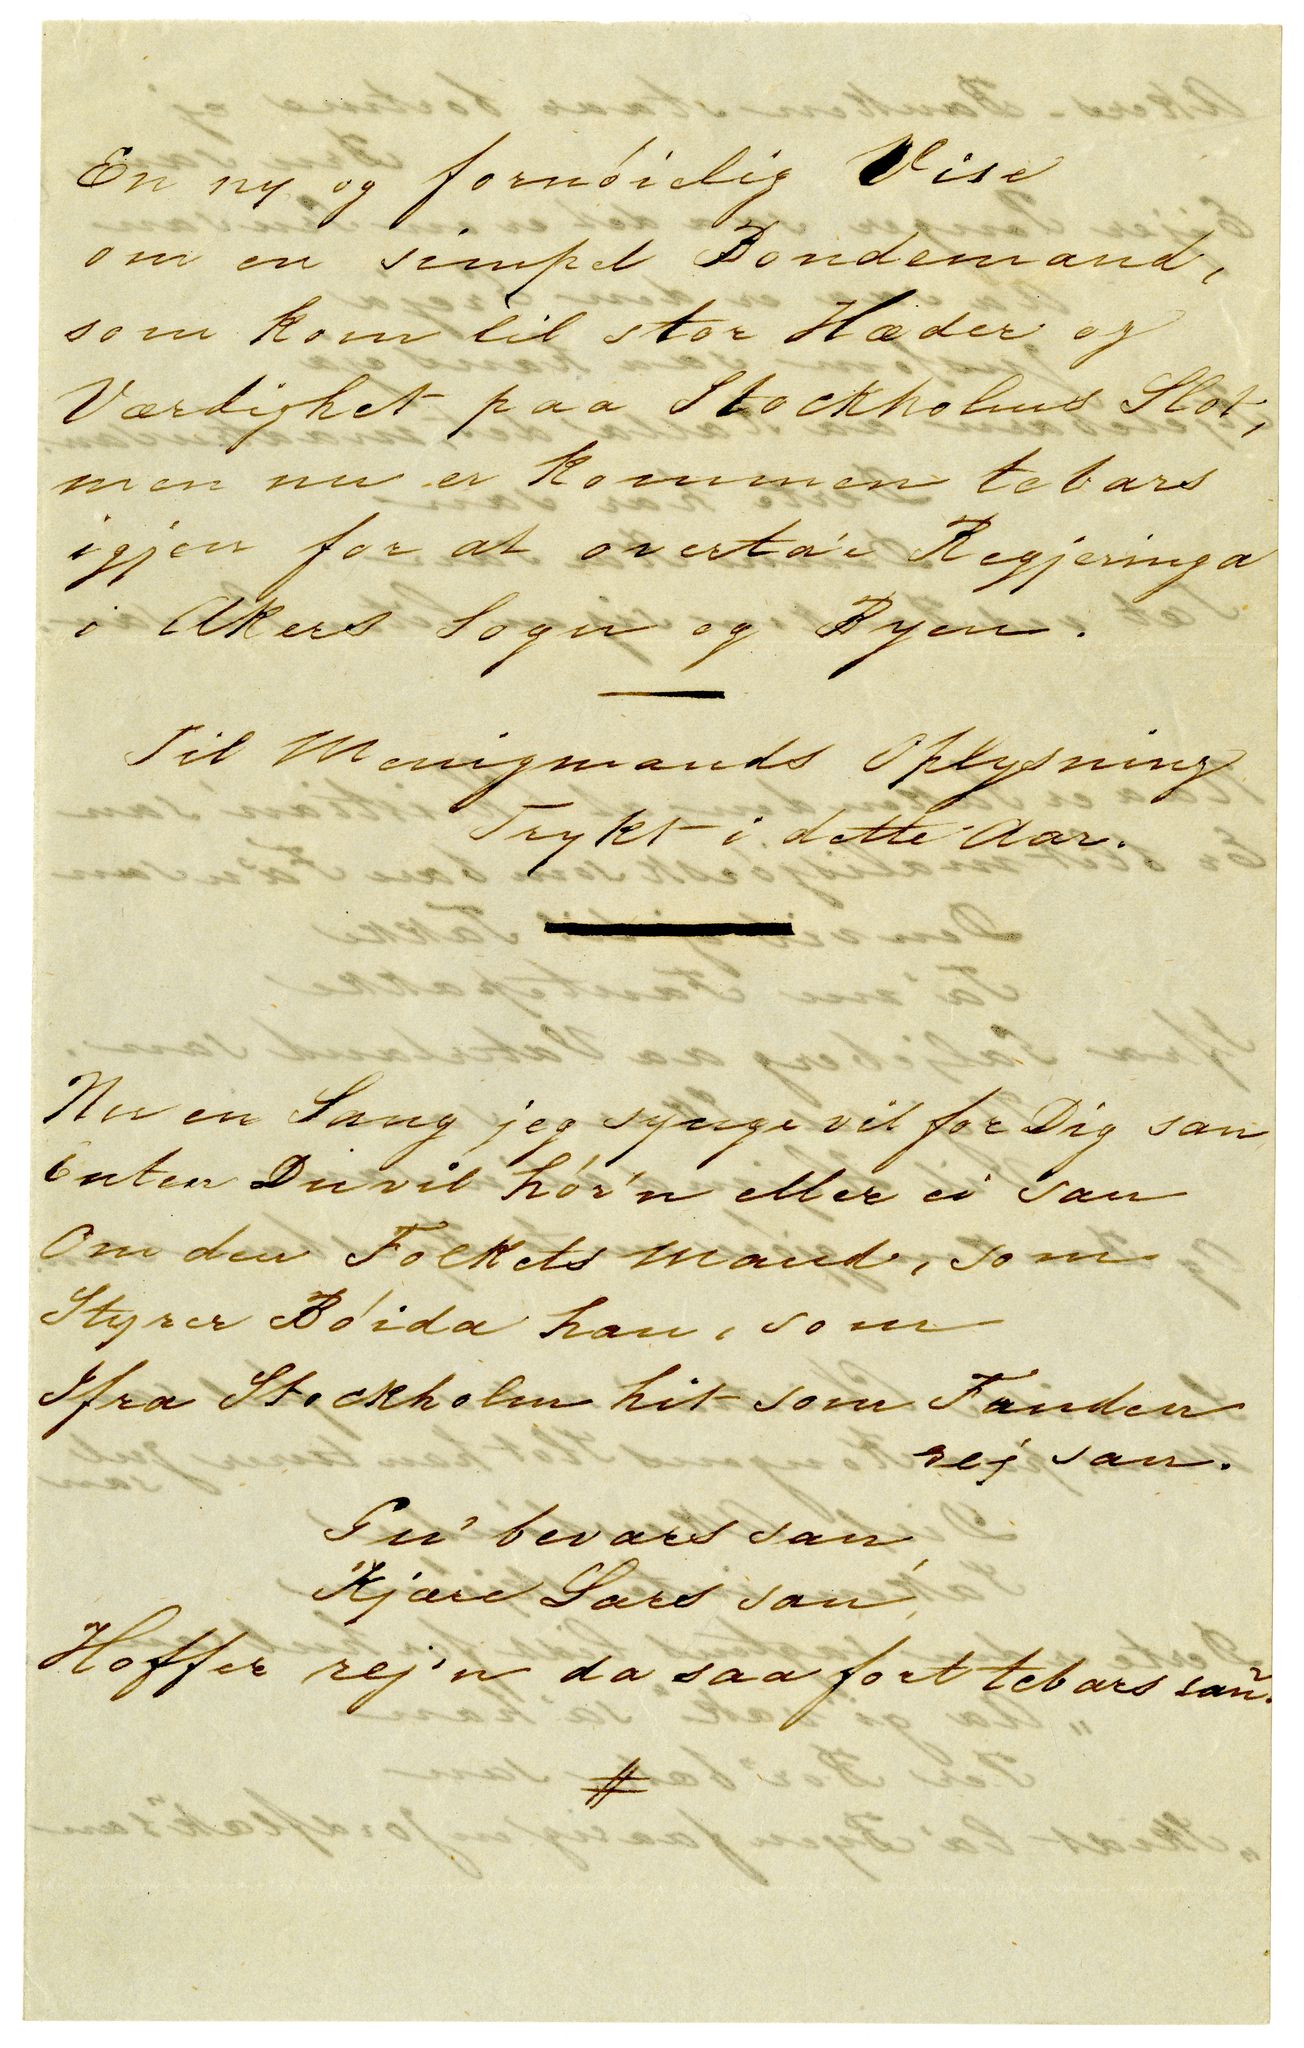 En ny og fornöielig Vise
om en simpel Bondemand,
som kom til stor Hæder og
Værdighet paa Stockholms Slot,
men nu er kommen tebars
igjen for at overta'e Regjeringa
i Akers Sogn og Byen.
Til Menigmands Oplysning
Trykt i dette Aar.
Nu en Sang jeg synge vil for Dig san
Enten Du vil hör'n eller ei san
Om den Folkets Mand, som
Styrer Böida han, som
Ifra Stockholm hit som Fanden
rej san.
Gu' bevars san,
Kjære Lars san,
Hoffer rej'n da saa fort tebars san.